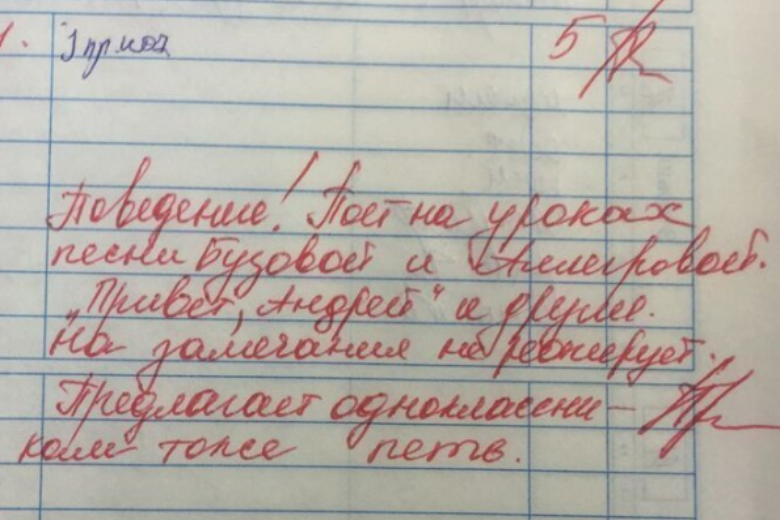 1.
5
Поведение! Поёт на уроках
песни Бузовой и Аллегровой.
„Привет, Андрей" и другие.
На замечания не реагирует.
Предлагает одноклассни-
кам тоже петь.